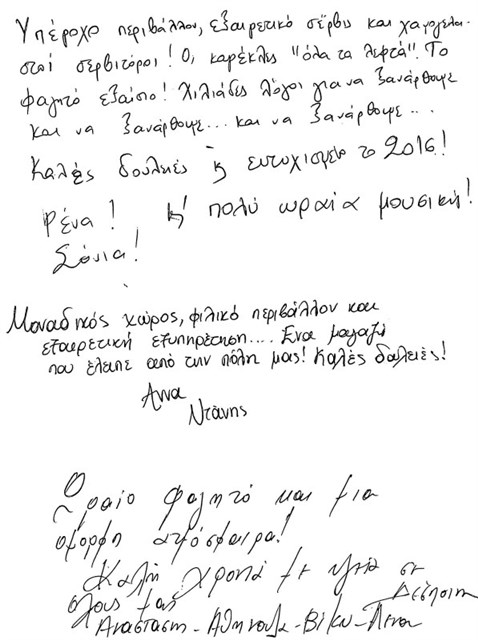 Υπέροχο περιβάλλον, εξαιρετικό σέρβις και χαμογελα-
στοί σερβιτόροι! Οι καρέκλες "όλα τα λεφτά". Το
φαγητό εξαίσιο! Χιλιάδες λόγοι για να ξανάρθουμε
και να ξανάρθουμε... και να ξανάρθουμε...
Καλές δουλειές & ευτυχισμένο το 2015!
Ρένα! & πολύ ωραία μουσική!
Σόνια!
Μοναδικός χώρος, φιλικό περιβάλλον και
εξαιρετική εξυπηρέτηση.... Ένα μαγαζί
που έλειπε από την πόλη μας! Καλές δουλειές!
Άννα
Ντάνης
Ωραίο φαγητό και μια
όμορφη ατμόσφαιρα!
Καλή χρονιά με υγεία σε
όλους μας Δέσποινα
Αναστάση - Αθηνούλα - Βίκυ - Λένα